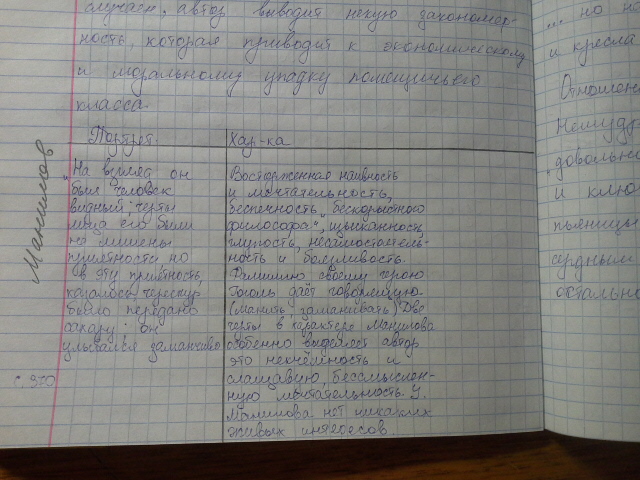 случаем, автор выводит некую закономер-
ность, которая приводит к экономическому
и моральному упадку помещичьего
класса.
Манилов
Портрет.
„На взгляд он
был человек
видный; черты
лица его были
не лишены
приятности, но
в эту приятность,
казалось, черезчур
было передано
сахару; он
улыбался заманчиво
с. 320
Хар-ка
Восторженная наивность
и мечтательность,
беспечность „бескорыстного
философа", изысканность,
глупость, несамостоятель-
ность и боязливость.
Фамилию своему герою
Гоголь даёт говорящую.
(манить, заманивать) Две
черты в характере Манилова
особенно выделяет автор
это никчёмность и
слащавую, бессмыслен-
ную мечтательность. У
Манилова нет никаких
живых интересов.
... но на
и кресла
Отношен
Немудр
довольно
и клю
пьяницы
остально